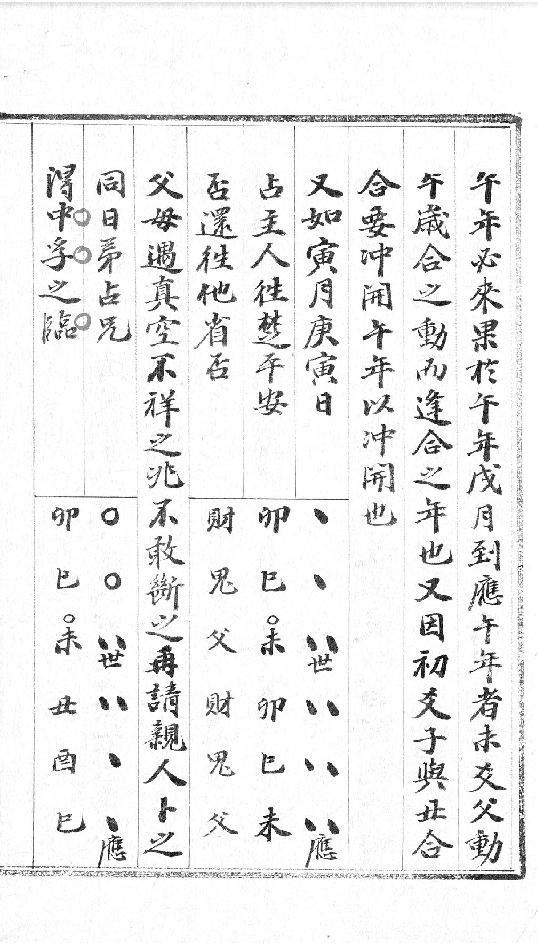 午年必來果於午年戌月到應午年者未爻父動
午歲合之動而逢合之年也又因初爻子與丑合
合要冲開午年以冲開也
又如寅月庚寅日
占主人往楚平安
否還往他省否
、、〃世〃〃〃應
卯巳未卯巳未
財鬼父財鬼父
父母遇真空不祥之兆不敢斷之再請親人卜之
同日弟占兄
得中孚之臨
○○〃世〃、、應
卯巳未丑酉巳